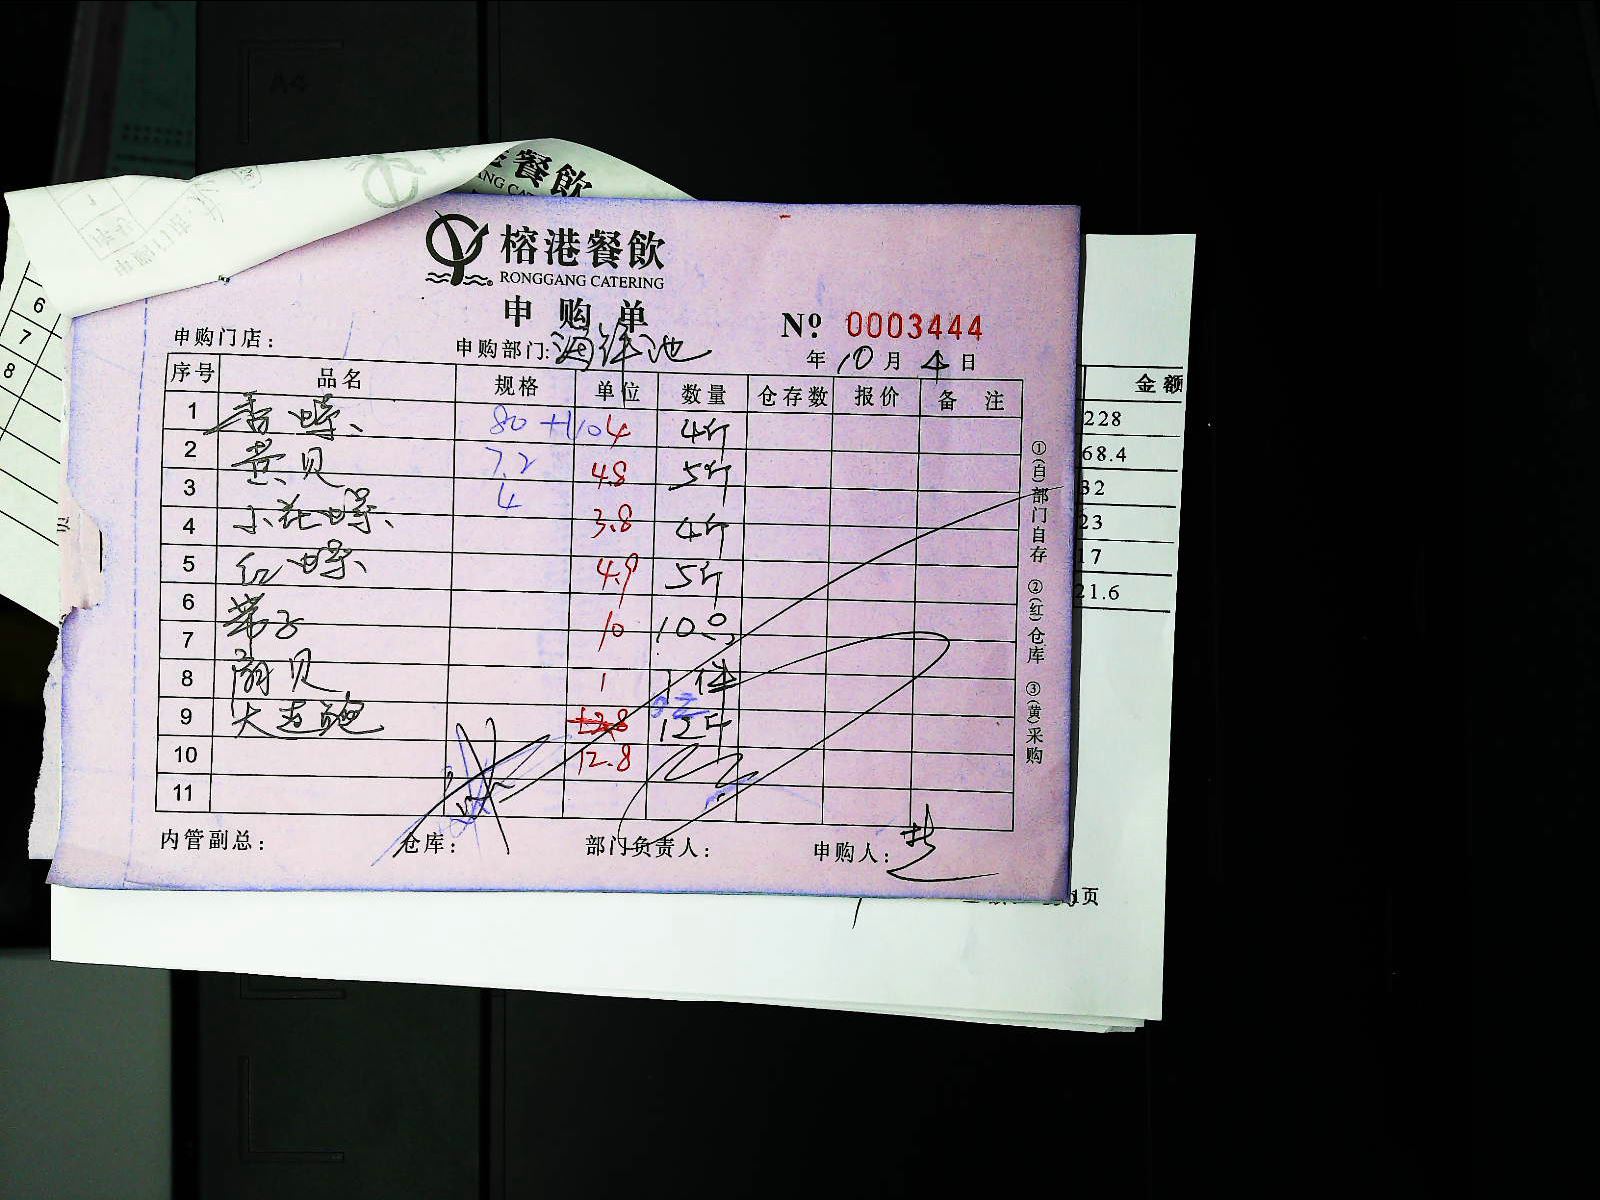 A4
餐飲
榕港餐飲
RONGGANG CATERING
申购单
№ 0003444
申购门店： 申购部门：海鲜池 年 10 月 4 日
序号 品名 规格 单位 数量 仓存数 报价 备 注
1 香螺 80 + 4 4斤
2 黄贝 7.2 4.8 5斤
3 小花螺 4 3.8 4斤
4 红螺 4.9 5斤
5
6 带子 10 10只
7 扇贝 1 1件
8
9 大连鲍 12.8 12斤
10 12.8
11
内管副总： 仓库： 部门负责人： 申购人：
①(白)部门自存 ②(红)仓库 ③(黄)采购
金额
228
68.4
32
23
17
21.6
1页
6
7
8